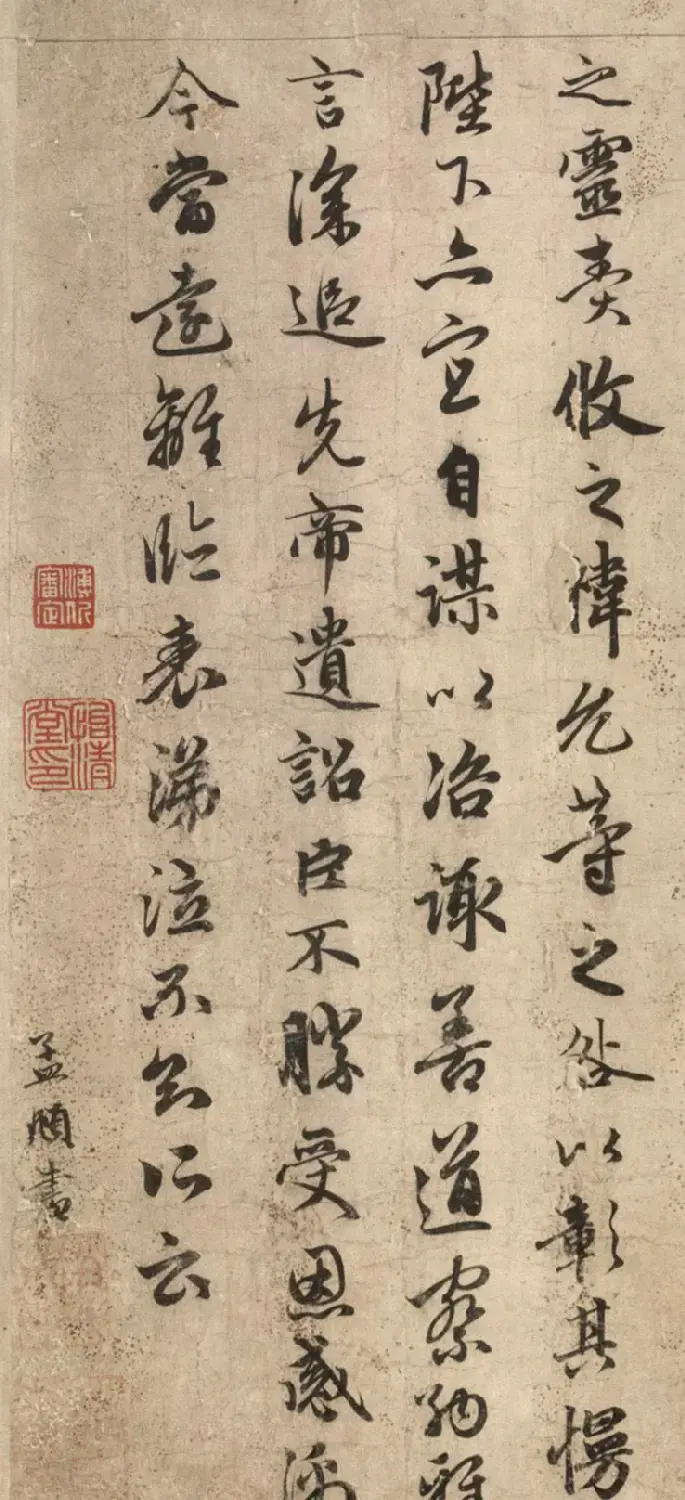 之靈責攸之禕允等之咎以彰其慢
陛下亦宜自謀以咨諏善道察納雅
言深追先帝遺詔臣不勝受恩感激
今當遠離臨表涕泣不知所云
孟頫書
審定